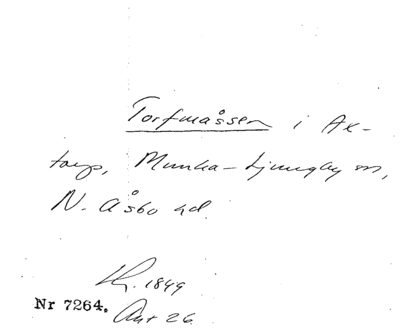 Torfmåssen i Ax-
torp, Munka-Ljungby sn,
N. Åsbo hd.
1849
Nr 7264. Akt 26